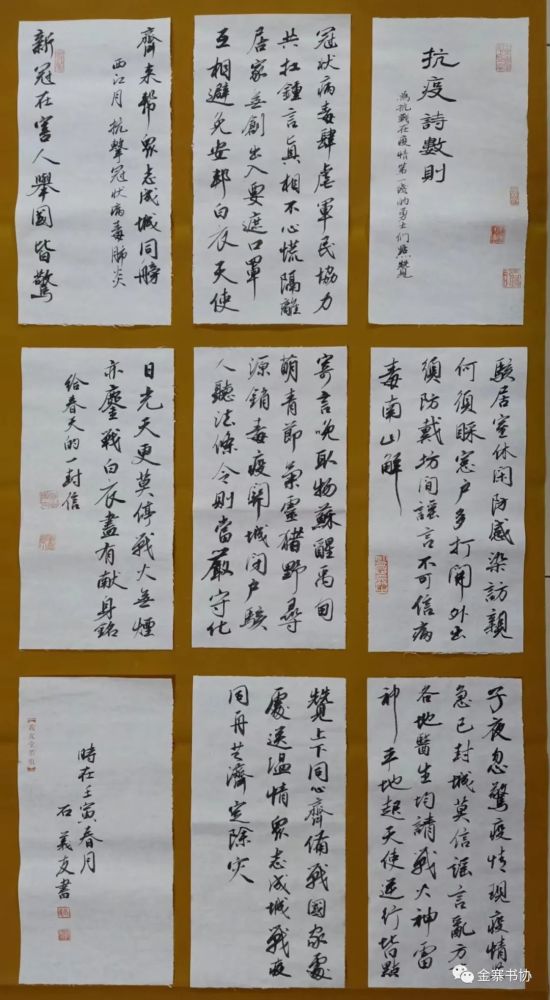 抗疫詩數則
為抗戰在疫情第一綫的勇士們點贊
冠狀病毒肆虐軍民協力
共扛鍾言真相不心慌隔離
居家無創出入要遮口罩
互相避免安邦白衣天使
齊来幫眾志成城同
西江月 抗擊冠狀病毒肺炎
新冠在害人舉國皆驚
駭居室休闲防感染訪親
何須睬窓户多打開外出
須防戴坊间謡言不可信病
毒南山解
寄言唤取物蘇醒禹甸
萌青節氣靈猎野尋
源銷毒疫閉城闭户
人聽法條令則當嚴守化
日光天更莫停戰火無煙
亦鏖戰白衣盡有献身銘
給春天的一封信
子夜忽驚疫情現疫情
急已封城莫信謡言亂方
各地醫生均請戰火神雷
神平地起天使逆行皆點
贊上下同心齊備戰國家處
處送温情眾志成城戰疫
同舟共濟定除灾
時在壬寅春月
石義友書
金寨书协